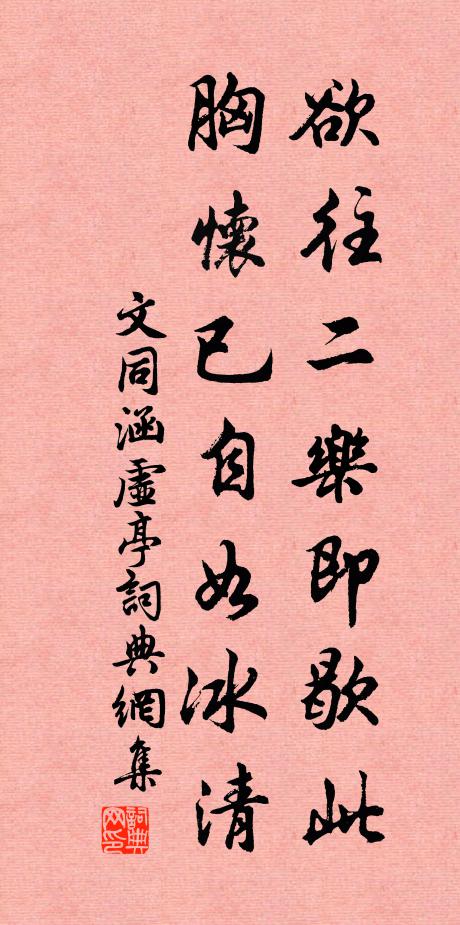 欲往二樂即歇此
胸懷已自如冰清
文同涵虛亭詞典網集
詞典网印